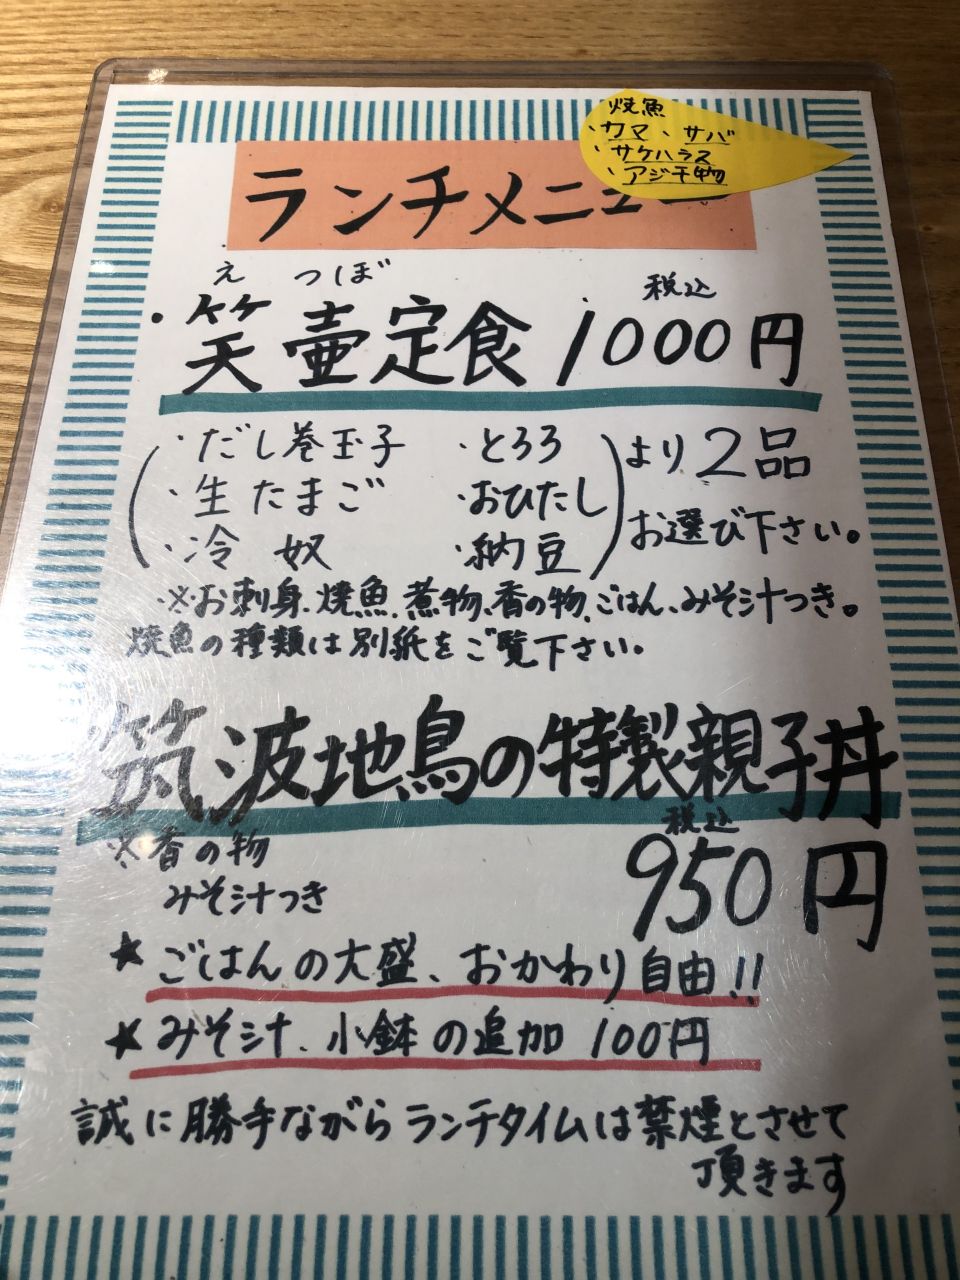 焼魚
・カマ、サバ
・サケハラス
・アジ干物
ランチメニュー
え つぼ 税込
・笑壷定食 1000円
・だし巻玉子 ・とろろ
・生たまご ・おひたし
・冷奴 ・納豆
より2品
お選び下さい。
・※お刺身、焼魚、煮物、香の物、ごはん、みそ汁つき。
焼魚の種類は別紙をご覧下さい。
筑波地鳥の特製親子丼
※香の物
みそ汁つき
税込
950円
★ごはんの大盛、おかわり自由!!
★みそ汁、小鉢の追加 100円
誠に勝手ながらランチタイムは禁煙とさせて
頂きます